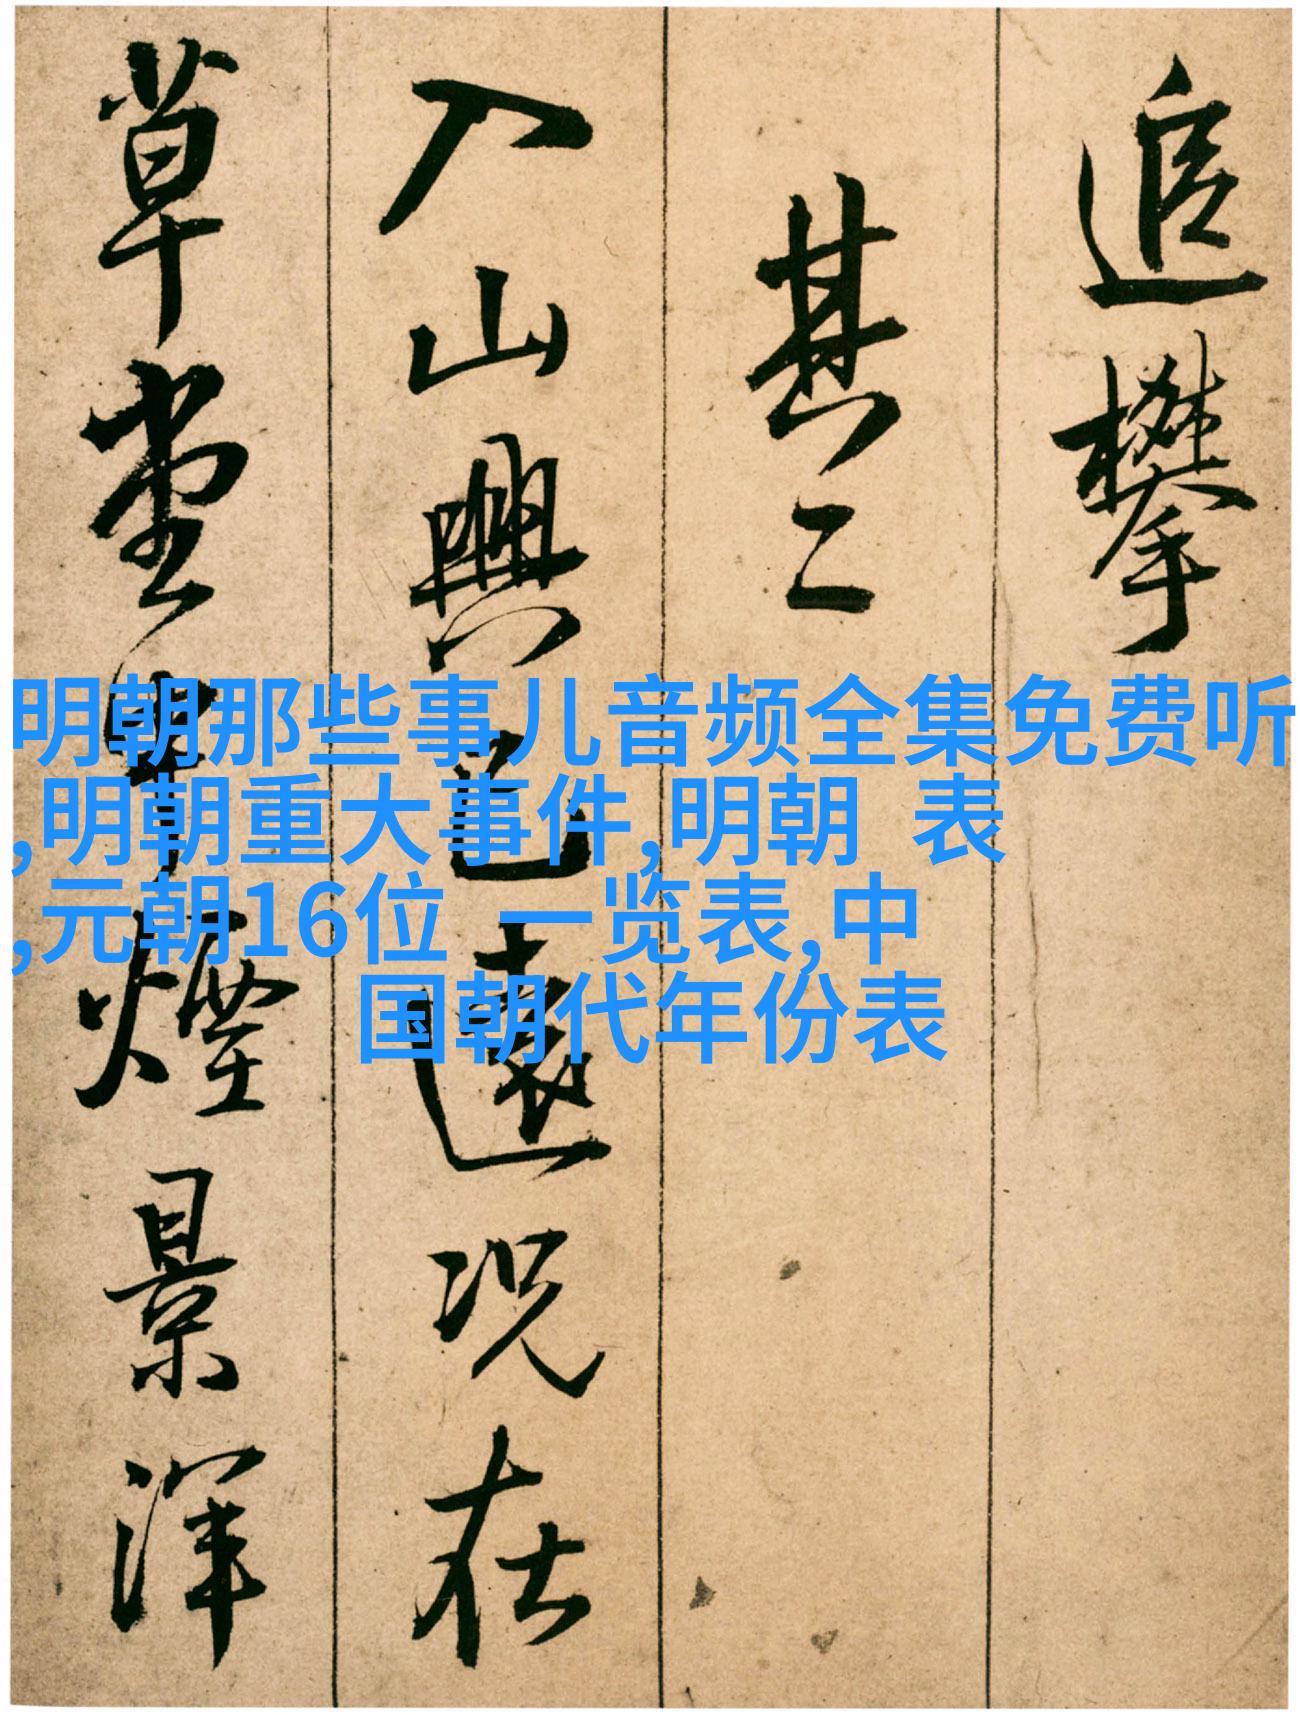 追攀
其二
入山興遠況在
草堂煙景渾
明朝那些事儿音频全集免费听
,明朝重大事件,明朝 表
,元朝16位 一览表,中
国朝代年份表